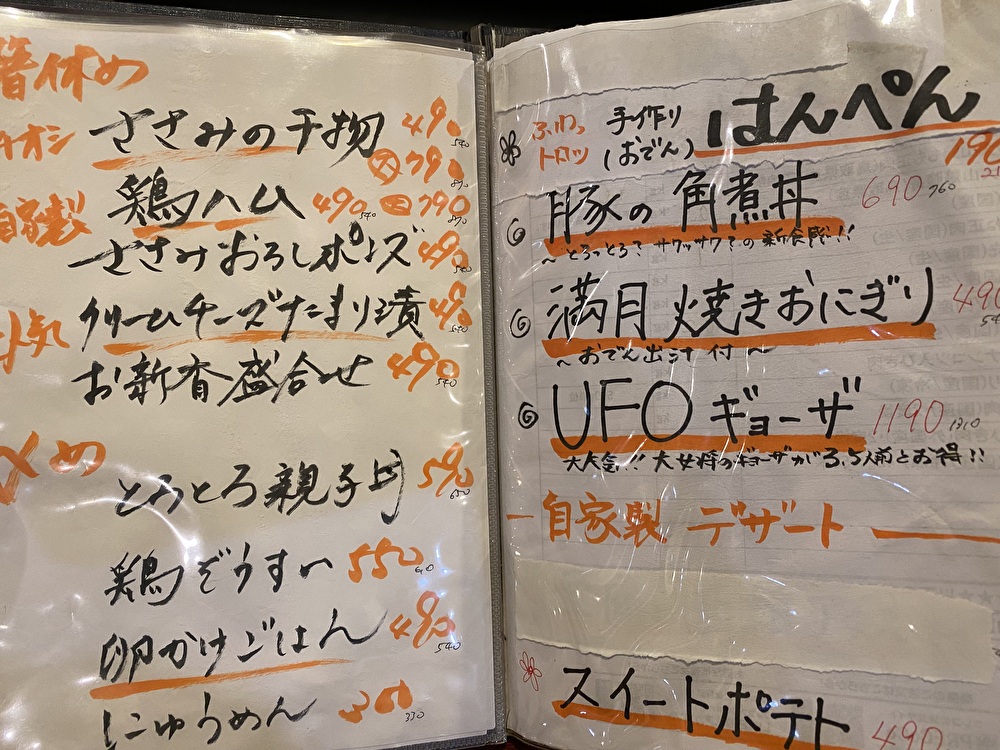 箸休め
ささみの干物 490 540
大 790 870
自家製 鶏ハム 490 540 大 790 870
ささみおろしポンズ 490 540
人気 クリームチーズたまり漬 490 540
お新香盛合せ 490 540
〆め
とろとろ親子丼 590 650
鶏ぞうすい 550
卵かけごはん 490 540
にゅうめん 300 330
ふわっ
トロッ
手作り
(おでん)
はんぺん
190
豚の角煮丼 690 760
～とろっとろ?サクッサク?の新食感!!
満月焼きおにぎり 490
～おでん出汁付～
UFOギョーザ 1190 1310
大人気!!大女将のギョーザが3.5人前とお得!!
自家製 デザート
スイートポテト 490